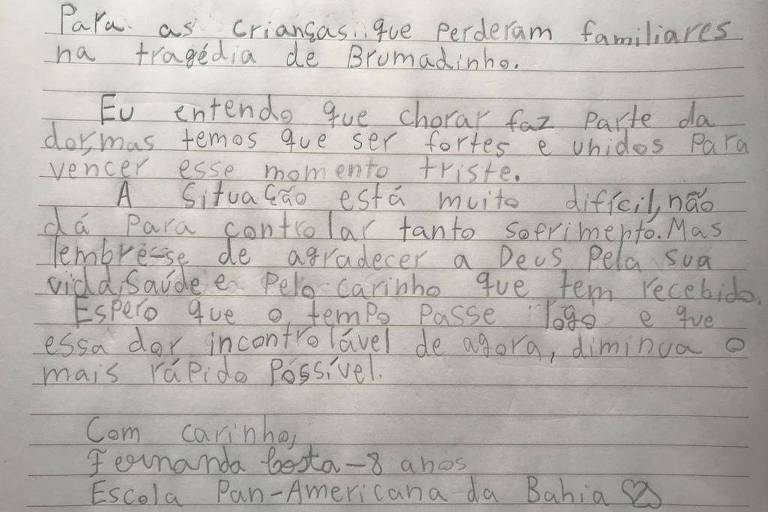 Para as crianças que perderam familiares
na tragédia de Brumadinho.
Eu entendo que chorar faz parte da
dor, mas temos que ser fortes e unidos para
vencer esse momento triste.
A situação está muito difícil, não
dá para controlar tanto sofrimento. Mas
lembre-se de agradecer a Deus pela sua
vida, saúde e pelo carinho que tem recebido.
Espero que o tempo passe logo e que
essa dor incontrolável de agora, diminua o
mais rápido possível.
Com carinho,
Fernanda Costa - 8 anos
Escola Pan-Americana da Bahia